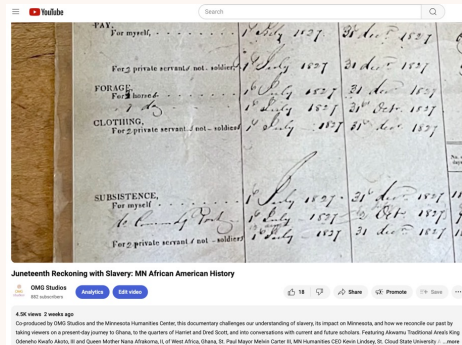 YouTube
Search
PAY,
For myself, 1st July 1827 31 decr
For 2 private servants not soldiers 1st July 1827 31 decr
FORAGE,
For horses 1st July 1827 31 decr
1st July 1827 31st Octr. 1827
CLOTHING,
For 2 private servants not soldiers 1st July 1827 31st decr 1827
SUBSISTENCE,
For myself 1st July 1827 31st decr 1827
1st July 1827
For 2 private servants not soldiers 1st July 1827 31 decr 1827
Juneteenth Reckoning with Slavery: MN African American History
OMG Studios
882 subscribers
Analytics
Edit video
18
Share
Promote
Save
4.5K views 2 weeks ago
Co-produced by OMG Studios and the Minnesota Humanities Center, this documentary challenges our understanding of slavery, its impact on Minnesota, and how we reconcile our past by
taking viewers on a present-day journey to Ghana, to the quarters of Harriet and Dred Scott, and into conversations with current and future scholars. Featuring Akwamu Traditional Area's King
Odeneho Kwafo Akoto, III and Queen Mother Nana Afrakoma, II, of West Africa, Ghana, St. Paul Mayor Melvin Carter III, MN Humanities CEO Kevin Lindsey, St. Cloud State University A ...more